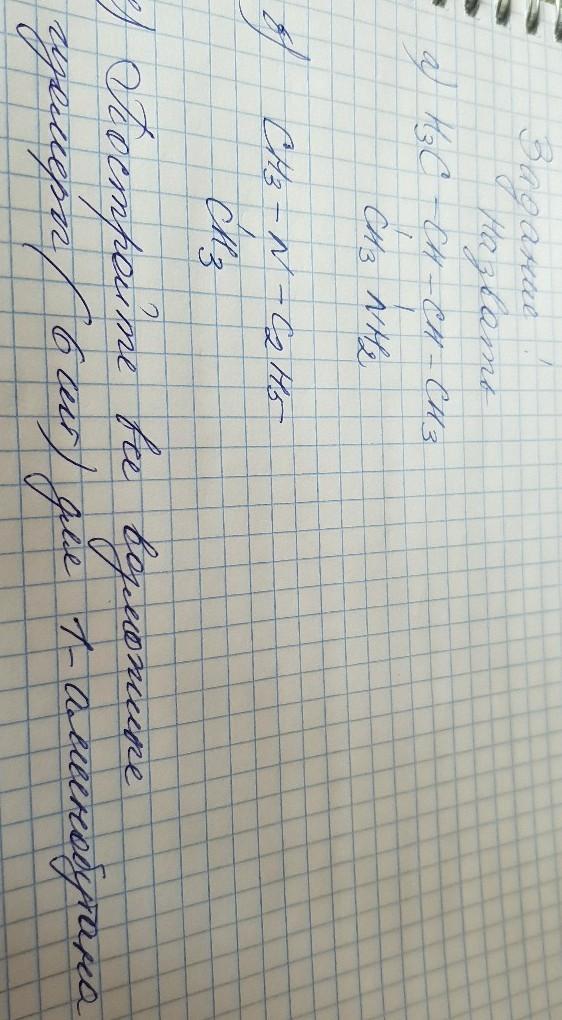 Задание!
Назвать
а) H3C-CH-CH-CH3
CH3 NH2
б) CH3-N-C2H5
CH3
в) Постройте все возможные
изомеры (6 шт) для 1-аминобутана